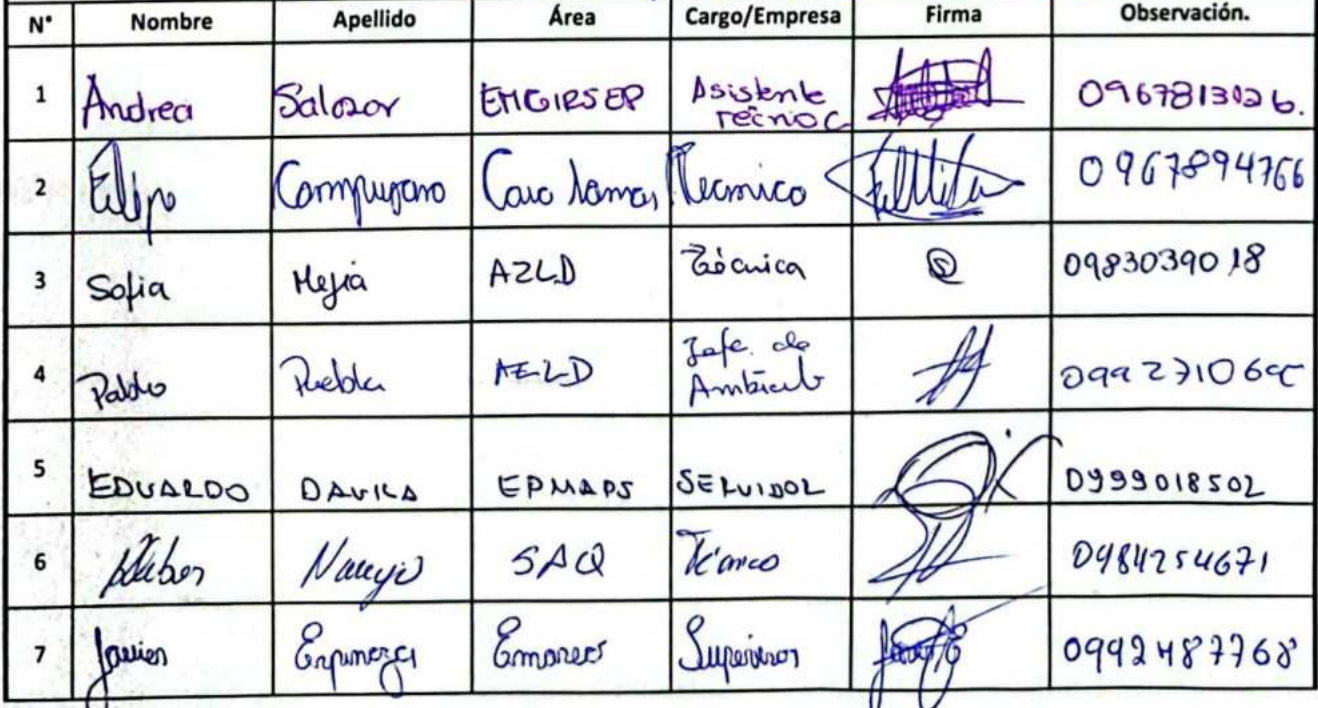 N° Nombre Apellido Área Cargo/Empresa Firma Observación.
1 Andrea Salazar EMGIRSEP Asistente
Técnico 0967813026.
2 Felipe Técnico 0967894766
3 Sofia Mejía AZLD Técnica 0983039018
4 Pablo Puebla AZLD Jefe de
Ambiente
5 EDUARDO DAVILA EPMAPS SERVIDOR 0999018502
6 Kleber Naranjo SAQ Técnico 0984254671
7 Javier Espinoza Supervisor 0992487768